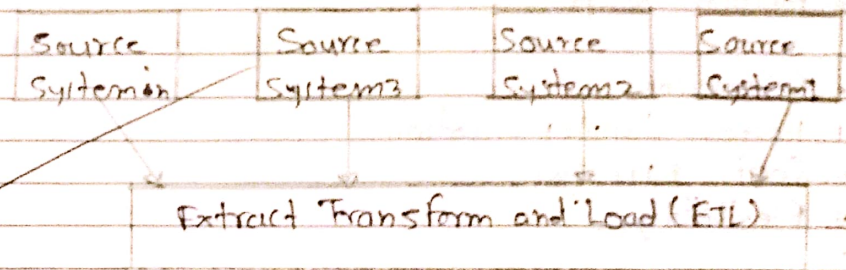 Source
System n
Source
System 3
Source
System 2
Source
System 1
Extract Transform and Load (ETL)